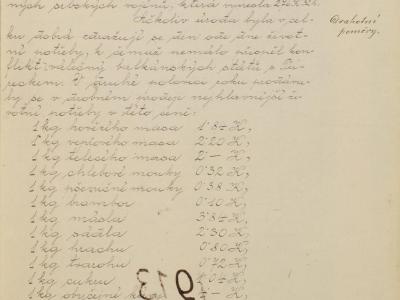 ných srbských vojínů, která vynesla 246 K 32 h.
Ačkoliv úroda byla v cel-
ku dobrá zdražují se den ode dne život-
ní potřeby, k čemuž nemálo přispěl kon-
flikt válečný balkánských států s Tu-
reckem. V druhé polovici roku prodáva-
ly se v drobném prodeji nejhlavnější ži-
votní potřeby v této ceně:
Drahotní
poměry.
1 kg hovězího masa 1·84 K,
1 kg vepřového masa 2·20 K,
1 kg telecího masa 2·— K,
1 kg chlebové mouky 0·32 K,
1 kg pšeničné mouky 0·38 K,
1 kg brambor 0·10 K,
1 kg másla 3·84 K,
1 kg sádla 2·30 K,
1 kg hrachu 0·80 K,
1 kg tvarohu 0·72 K,
1 kg cukru 1·04 K,
1 kg obyčejné K,
913